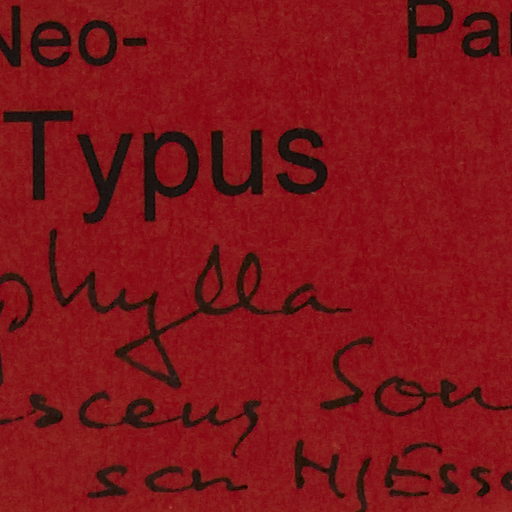 Neo- Par
Typus
phylla
scens Son
sch HJEsse